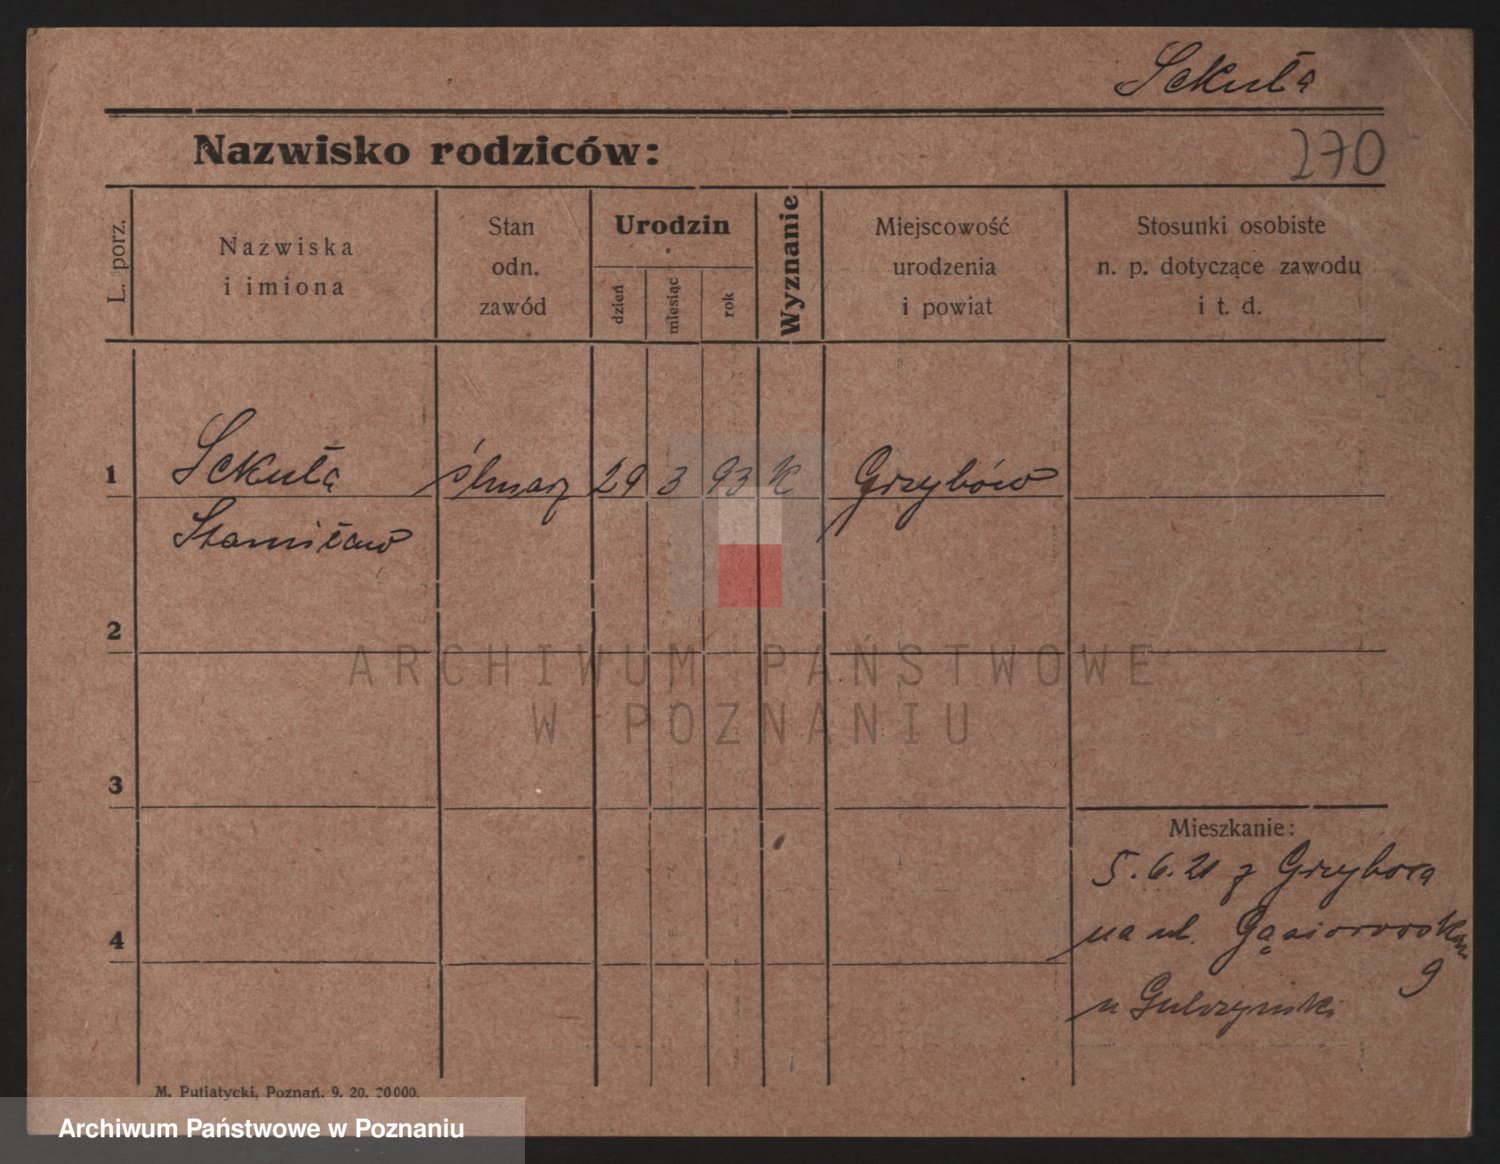 Sekuła
Nazwisko rodziców:
270
L. porz.
Nazwiska
i imiona
Stan
odn.
zawód
Urodzin
dzień
miesiąc
rok
Wyznanie
Miejscowość
urodzenia
i powiat
Stosunki osobiste
n. p. dotyczące zawodu
i t. d.
1
Sekuła
ślusarz
29
3
93
k
Grzybów
Stanisław
2
ARCHIWUM PAŃSTWOWE
W POZNANIU
3
Mieszkanie:
5.6.21 z Grzybowa
4
na ul. Gąsiorowskich
9
u
M. Putiatycki, Poznań. 9. 20. 20000.
Archiwum Państwowe w Poznaniu